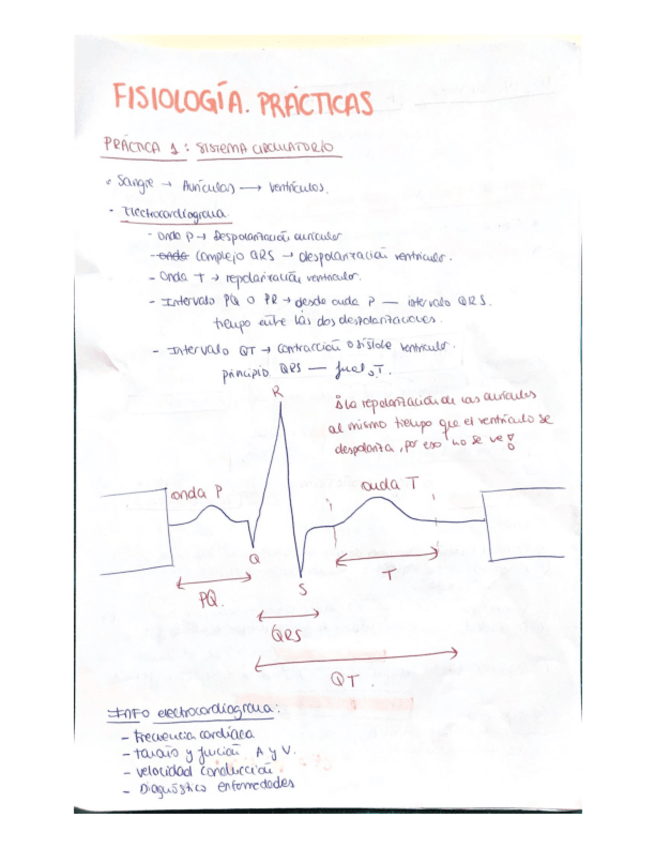 FISIOLOGÍA. PRÁCTICAS
PRÁCTICA 1: SISTEMA CIRCULATORIO
Sangre → Aurículas → Ventrículos.
- Electrocardiograma
- onda P → Despolarización auricular
- onda complejo QRS → despolarización ventricular.
- Onda T → repolarización ventricular.
- Intervalo PQ O PR → desde onda P — intervalo QRS.
tiempo entre las dos despolarizaciones.
- Intervalo QT → contracción o sístole ventricular.
principio QRS — final T.
R
¡La repolarización de las aurículas
al mismo tiempo que el ventrículo se
despolariza, por eso no se ve!
onda P
onda T
Q
S
T
PQ.
QRS
QT.
INFO electrocardiograma:
- Frecuencia cardíaca
- tamaño y función A y V.
- velocidad conducción.
- Diagnóstico enfermedades